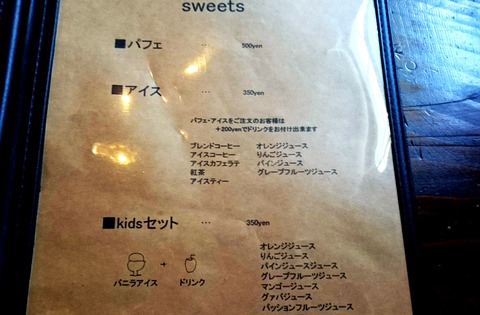 sweets
■パフェ ‥ 500yen
■アイス ‥ 350yen
パフェ・アイスをご注文のお客様は
+200yenでドリンクをお付け出来ます
ブレンドコーヒー オレンジジュース
アイスコーヒー りんごジュース
アイスカフェラテ パインジュース
紅茶 グレープフルーツジュース
アイスティー
■kidsセット … 350yen
バニラアイス + ドリンク
オレンジジュース
りんごジュース
パインジュースジュース
グレープフルーツジュース
マンゴージュース
グァバジュース
パッションフルーツジュース